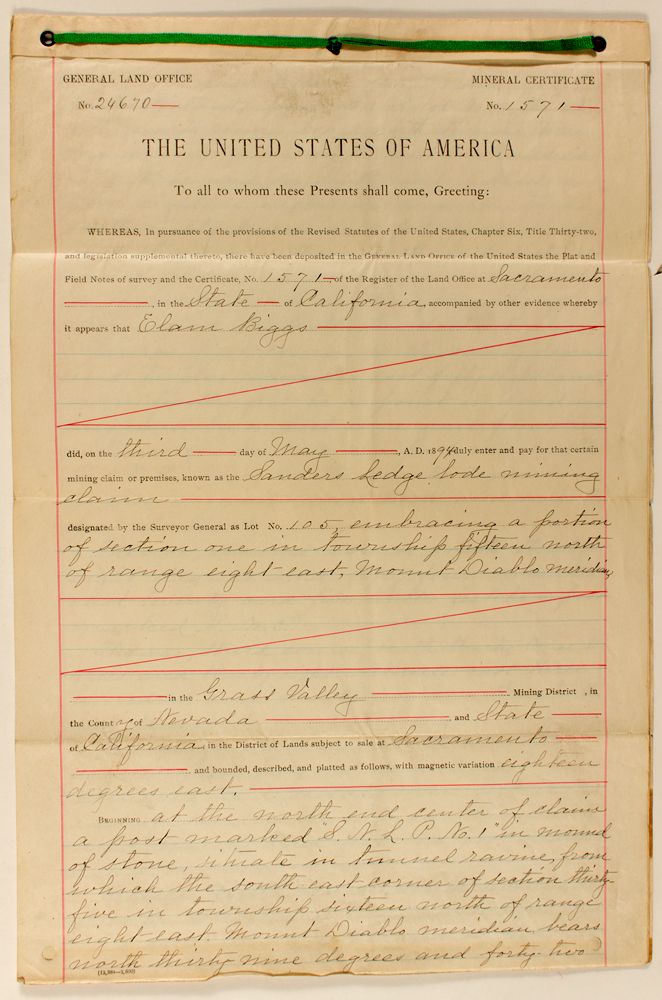 GENERAL LAND OFFICE
No. 24670
MINERAL CERTIFICATE
No. 1571
THE UNITED STATES OF AMERICA
To all to whom these Presents shall come, Greeting:
WHEREAS, In pursuance of the provisions of the Revised Statutes of the United States, Chapter Six, Title Thirty-two,
and legislation supplemental thereto, there have been deposited in the GENERAL LAND OFFICE of the United States the Plat and
Field Notes of survey and the Certificate, No. 1571 of the Register of the Land Office at Sacramento
, in the State of California, accompanied by other evidence whereby
it appears that Elam Biggs
did, on the third day of May, A. D. 1894 duly enter and pay for that certain
mining claim or premises, known as the Sanders Ledge lode mining
claim
designated by the Surveyor General as Lot No. 105, embracing a portion
of section one in township fifteen north
of range eight east, Mount Diablo meridian,
in the Grass Valley Mining District, in
the County of Nevada and State
of California, in the District of Lands subject to sale at Sacramento
, and bounded, described, and platted as follows, with magnetic variation eighteen
degrees east.
BEGINNING at the north end center of claim
a post marked "S. N. L. P. No. 1" in mound
of stone, situate in tunnel ravine, from
which the south east corner of section thirty
five in township sixteen north of range
eight east Mount Diablo meridian, bears
north thirty nine degrees and forty two